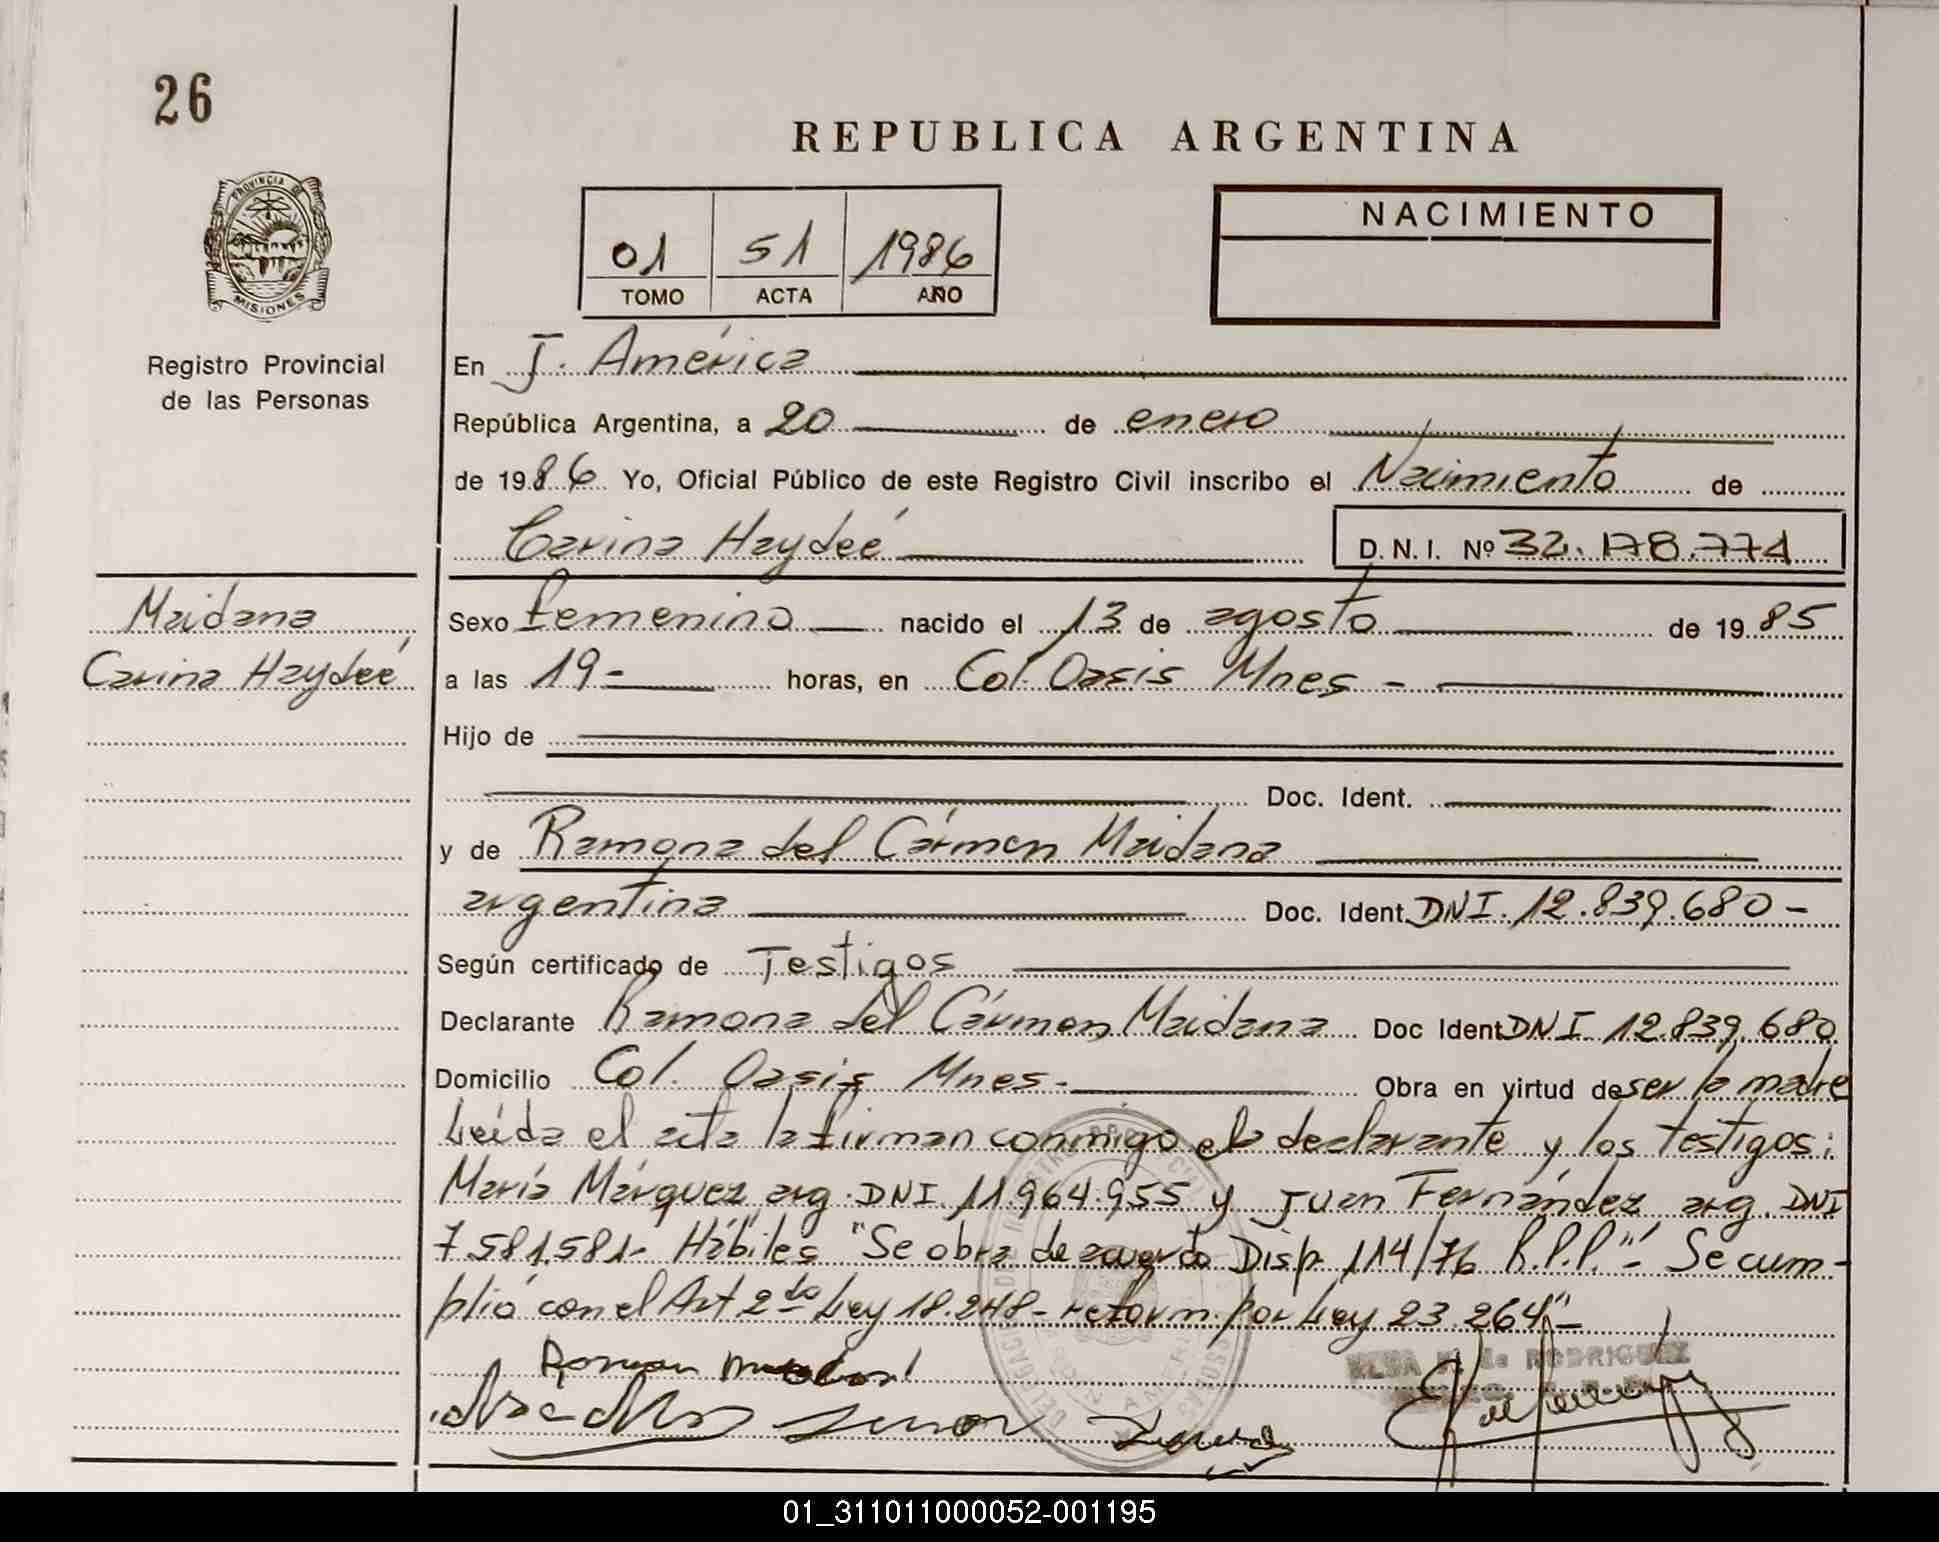 26
REPUBLICA ARGENTINA
PROVINCIA DE
MISIONES
Registro Provincial
de las Personas
01 51 1986
TOMO ACTA AÑO
NACIMIENTO
En J. América
República Argentina, a 20 de enero
de 1986 Yo, Oficial Público de este Registro Civil inscribo el Nacimiento de
Carina Haydeé D.N.I. Nº 32.178.771
Maidana
Carina Haydeé
Sexo femenino nacido el 13 de agosto de 1985
a las 19- horas, en Col. Oasis Mnes -
Hijo de
Doc. Ident.
y de Ramona del Cármen Maidana
argentina Doc. Ident. DNI. 12.839.680-
Según certificado de Testigos
Declarante Ramona del Cármen Maidana Doc Ident DNI. 12.839.680
Domicilio Col. Oasis Mnes- Obra en virtud de ser la madre
Leída el acta la firman conmigo la declarante y los testigos:
María Márquez arg. DNI 11.964.955 y Juan Fernández arg. DNI
7.581.581- Hábiles "Se obra de acuerdo Disp. 114/76 R.P.P."- Se cum-
plió con el Art 2do Ley 18.248- reform. por Ley 23.264"-
RODRIGUEZ
01_311011000052-001195